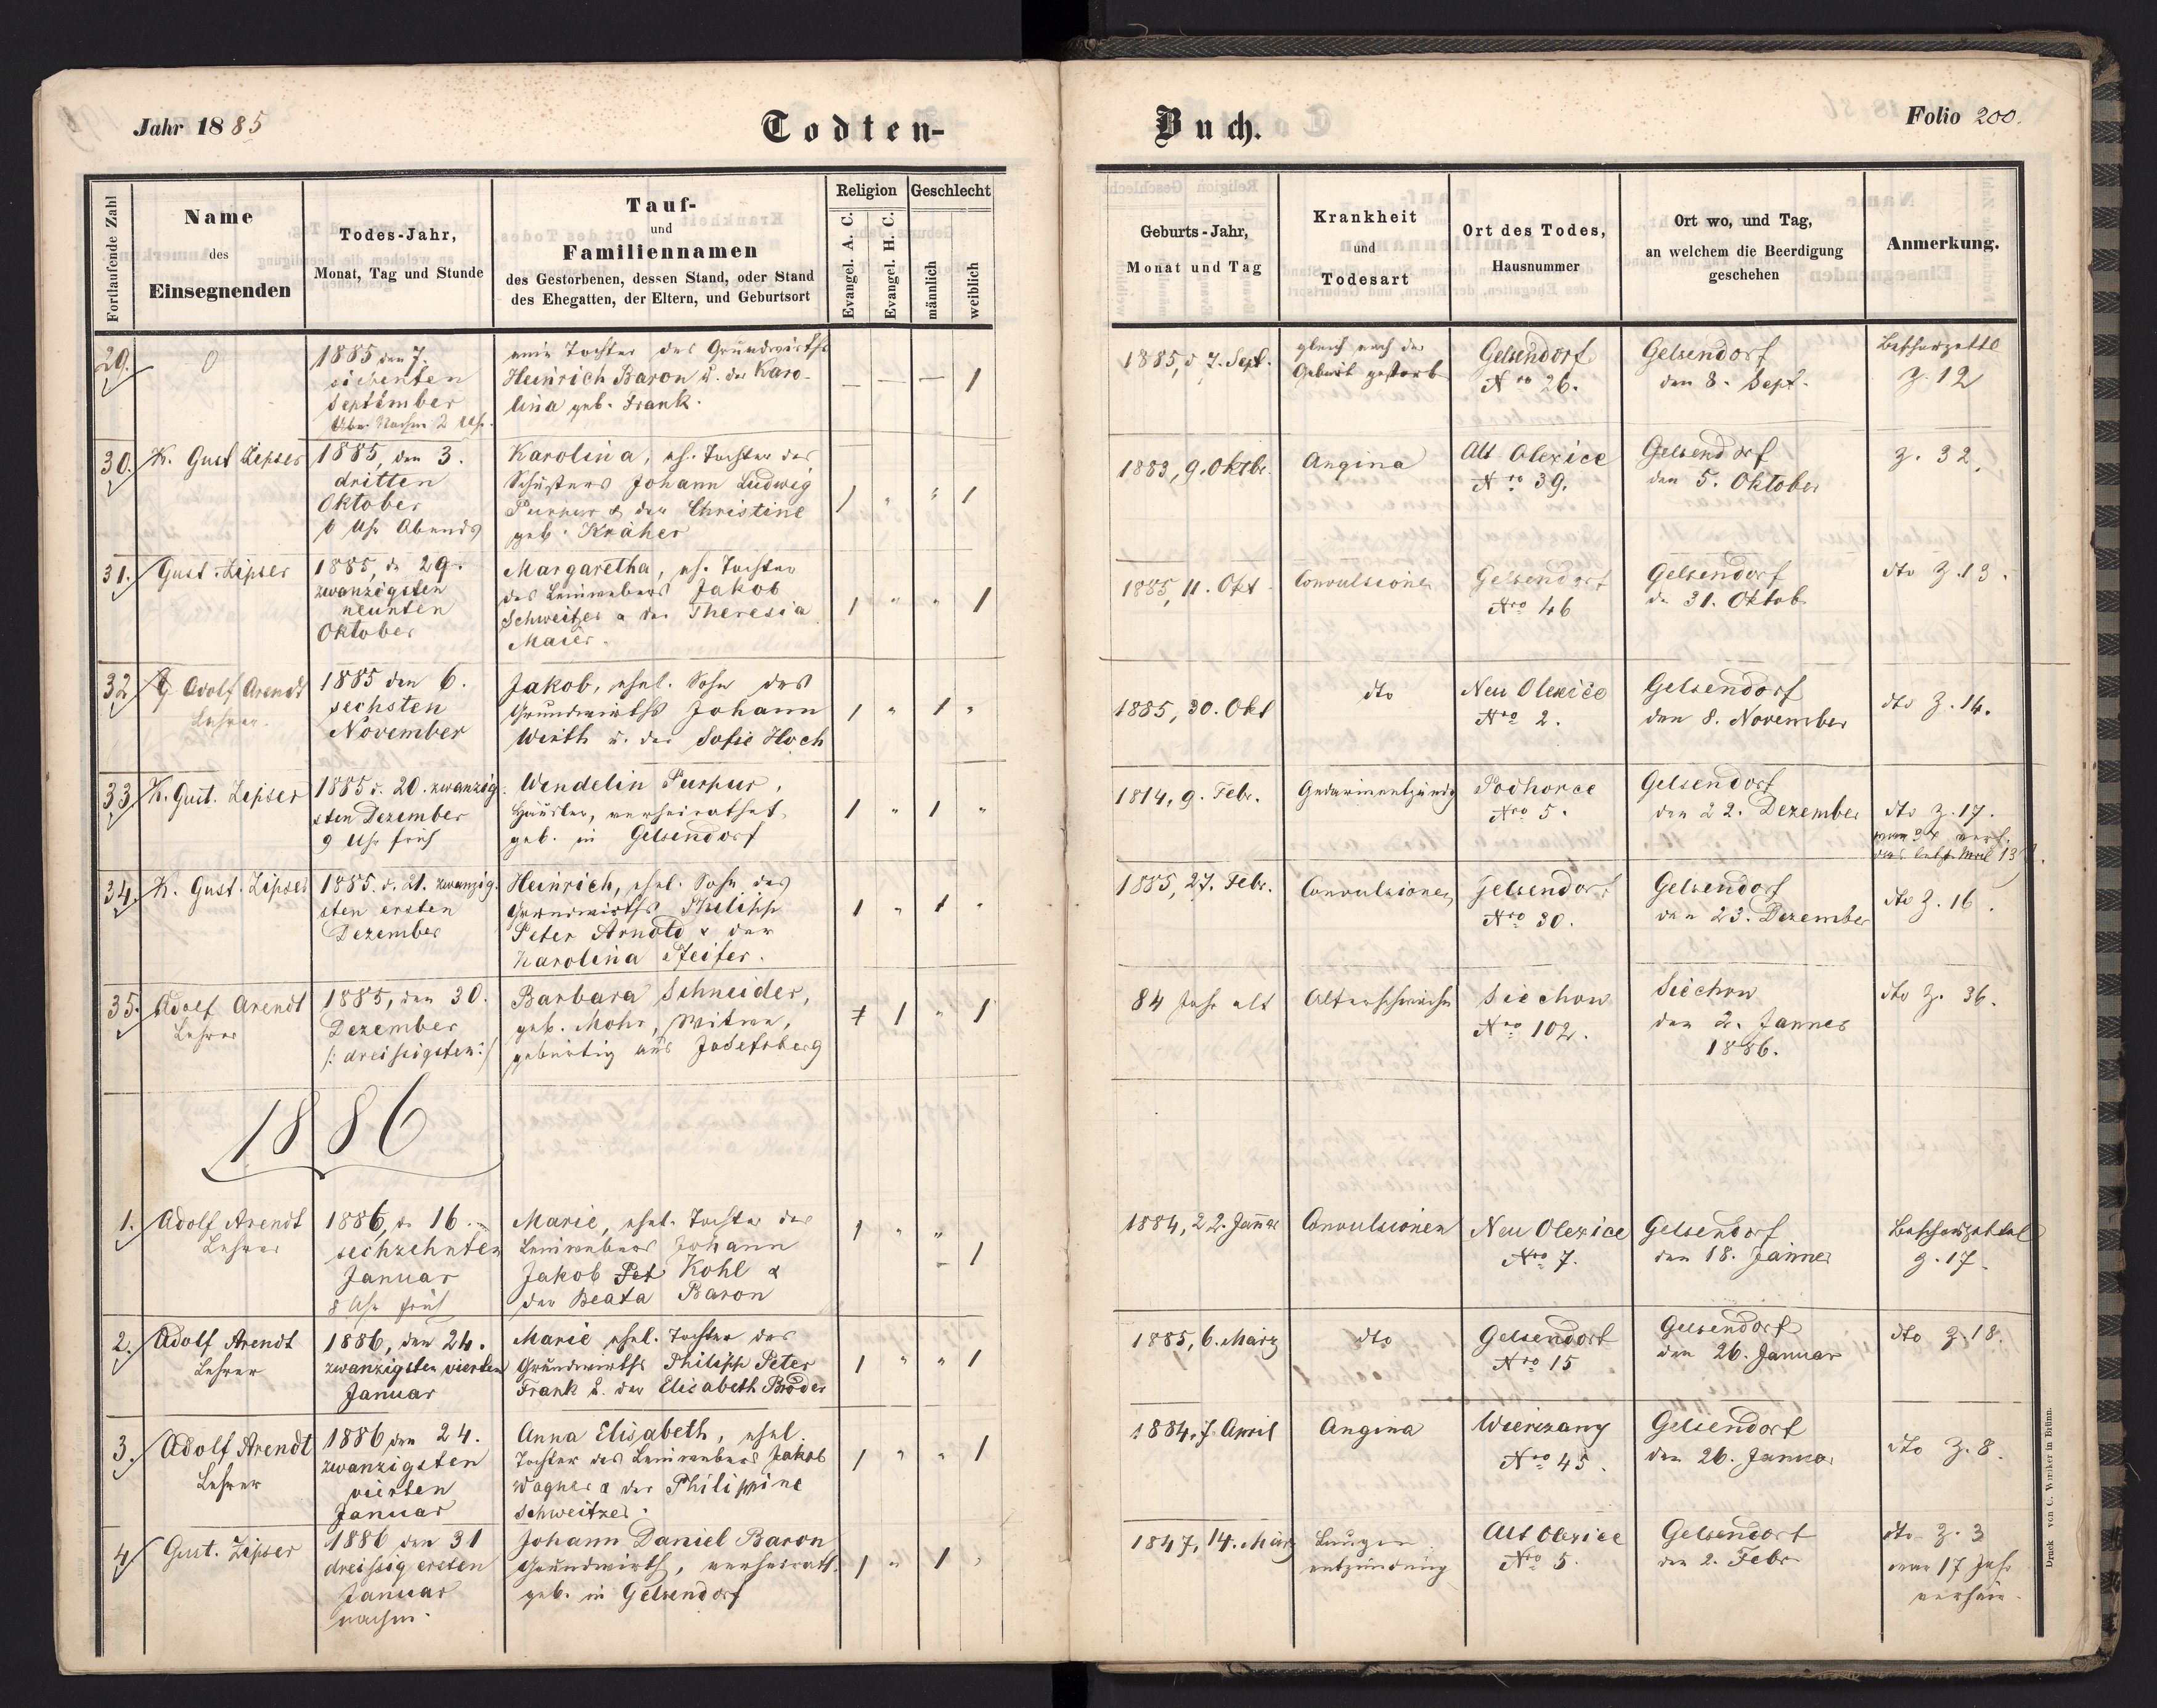 Jahr 1885
Todten-
Fortlaufende Zahl
Name
des
Einsegnenden
Todes-Jahr,
Monat, Tag und Stunde
Tauf-
und
Familiennamen
des Gestorbenen, dessen Stand, oder Stand
des Ehegatten, der Eltern, und Geburtsort
Religion
Evangel. A. C.
Evangel. H. C.
Geschlecht
männlich
weiblich
29.
1885 den 7.
siebenten
September
Nachm 2 Uhr
eine Tochter des Grundwirths
Heinrich Baron u. der Karo-
lina geb. Frank.
— — — 1
30. K. Gust Zipser
1885, den 3.
dritten
Oktober
6 Uhr Abends
Karolina, eh. Tochter des
Schusters Johann Ludwig
Purpur & der Christine
geb. Kräher
1 " " 1
31. Gust. Zipser
1885, d. 29.
zwanzigsten
neunten
Oktober
Margaretha, eh. Tochter
des Leinwebers Jakob
Schweitzer a der Theresia
Maier.
1 " " 1
32 Adolf Arendt
Lehrer.
1885 den 6.
sechsten
November
Jakob, ehel. Sohn des
Grundwirths Johann
Wirth u. der Sofie Hoch
1 " 1 "
33 K. Gust. Zipser
1885 d. 20. zwanzig-
sten Dezember
9 Uhr früh
Wendelin Purpur,
Häusler, verheirathet,
geb. in Gelsendorf
1 " 1 "
34. K. Gust. Zipser
1885. d. 21. zwanzig-
sten ersten
Dezember
Heinrich, ehel. Sohn des
Grundwirths Philipp
Peter Arnold & der
Karolina Pfeifer.
1 " 1 "
35. Adolf Arendt
Lehrer
1885, den 30.
Dezember
/: dreissigsten :/
Barbara Schneider,
geb. Mohr, Witwe,
gebürtig aus Josefsberg
1 1 " 1
1886
1. Adolf Arendt
Lehrer
1886, d. 16.
sechzehnten
Januar
8 Uhr früh
Marie, ehel. Tochter des
Leinwebers Johann
Jakob Pet Kohl &
der Beata Baron
1 " " 1
2. Adolf Arendt
Lehrer
1886, den 24.
zwanzigsten vierten
Januar
Marie ehel. Tochter des
Grundwirths Philipp Peter
Frank u. der Elisabeth Bröder
1 " " 1
3. Adolf Arendt
Lehrer
1886 den 24.
zwanzigsten
vierten
Januar
Anna Elisabeth, ehel.
Tochter des Leinwebers Jakob
Wagner a der Philippine
Schweitzer.
1 " " 1
4 Gust. Zipser
1886 den 31
dreissig ersten
Januar
nachm.
Johann Daniel Baron
Grundwirth, verheirath.
geb. in Gelsendorf
1 " 1 "
Buch.
Folio 200.
Geburts-Jahr,
Monat und Tag
Krankheit
und
Todesart
Ort des Todes,
Hausnummer
Ort wo, und Tag,
an welchem die Beerdigung
geschehen
Anmerkung.
1885, d 7. Sept.
gleich nach der
Geburt gestorb
Gelsendorf
Nro 26.
Gelsendorf
den 8. Sept.
Beschauzettl
Z. 12
1883, 9. Oktbr.
Angina
Alt Olexice
Nro 39.
Gelsendorf
den 5. Oktober
Z. 32.
1885, 11. Okt
Convulsionen
Gelsendorf
Nro 46
Gelsendorf
d. 31. Oktob
dto Z. 13.
1885, 30. Okt
dto
Neu Olexice
Nro 2.
Gelsendorf
den 8. November
dto Z. 14.
1814, 9. Febr.
Gedärmentzündg
Podhorce
Nro 5.
Gelsendorf
den 22. Dezember
dto Z. 17.
1885, 27. Febr.
Convulsionen
Gelsendorf
Nro 30.
Gelsendorf
den 23. Dezember
dto Z. 16.
84 Jahr alt
Altersschwäche
Siechow
Nro 102.
Siechow
den 2. Jänner
1886.
dto Z. 36.
1884, 22. Jänner
Convulsionen
Neu Olexice
Nro 7.
Gelsendorf
den 18. Jänner
Beschauzettel
Z. 17.
1885, 6. März
dto
Gelsendorf
Nro 15
Gelsendorf
den 26. Januar
dto Z. 18.
1884, 7. April
Angina
Wierczany
Nro 45.
Gelsendorf
den 26. Januar
dto Z. 8.
1847, 14. März
Lungen
entzündung
Alt Olexice
Nro 5.
Gelsendorf
den 2. Febr
dto Z. 3
war 17 Jahr
verheir.
Druck von C. Winiker in Brünn.